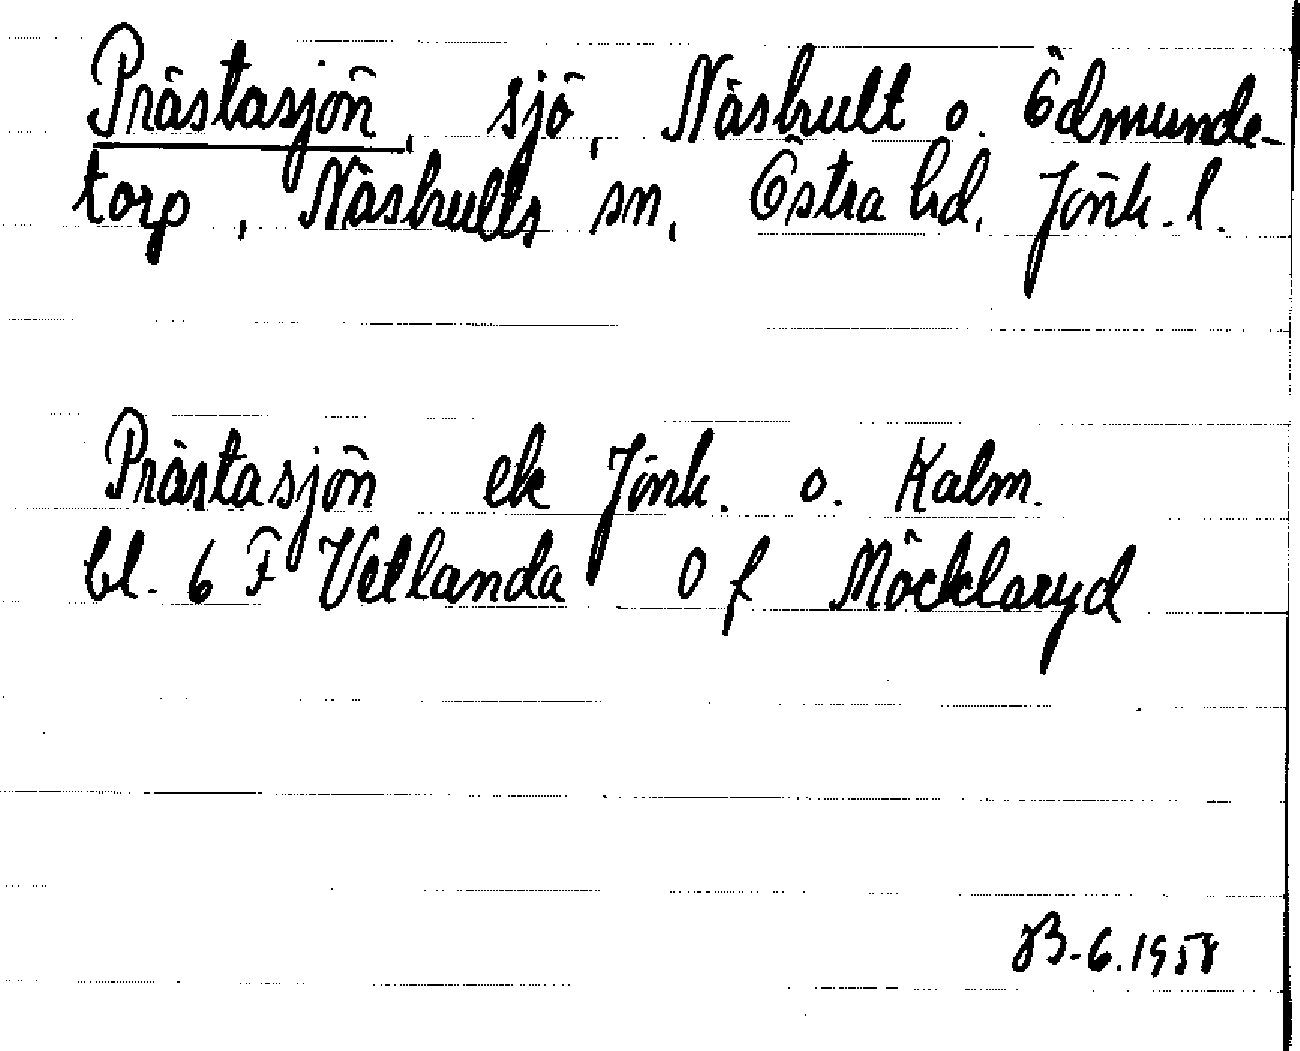 Prästasjön, sjö, Näshult o. Ödmunde-
torp, Näshults sn, Östra hd, Jönk. l.
Prästasjön ek Jönk. o. Kalm.
bl. 6 F Vetlanda 0 f Möcklaryd
JB-6.1958